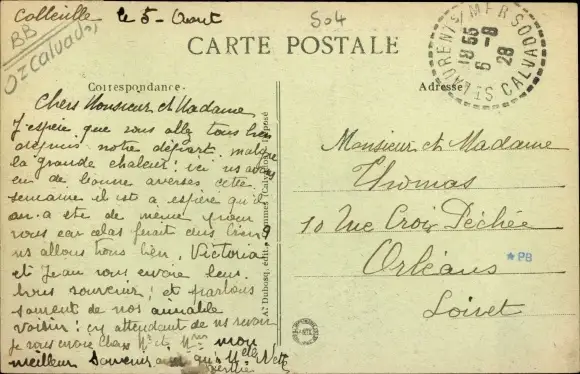 Colleville le 5 - Aout
504
BB
Oz Calvados
CARTE POSTALE
ST LAURENT S/ MER CALVADOS
18 55
6 - 8
28
Correspondance
Adresse
Chers Monsieur et Madame
J'espère que vous allez tous bien
depuis notre départ, malgré
la grande chaleur; ici ns avons
eu de bonne averses cette
semaine il est a espèré qu'il
en a été de meme pour
vous car celas ferait du bien
ns allons tous bien, Victoria
et Jean vous envoie leur
bons souvenir; et parlons
souvent de nos aimable
voisin; en attendant de ns revoir
je vous envoie Chers Mr et Mme mon
meilleur Souvenir ainsi qu'a Melle
Monsieur et Madame
Thomas
10 Rue Croix Pêchée
Orléans
Loiret
*PB
A. Dubosq, édit.